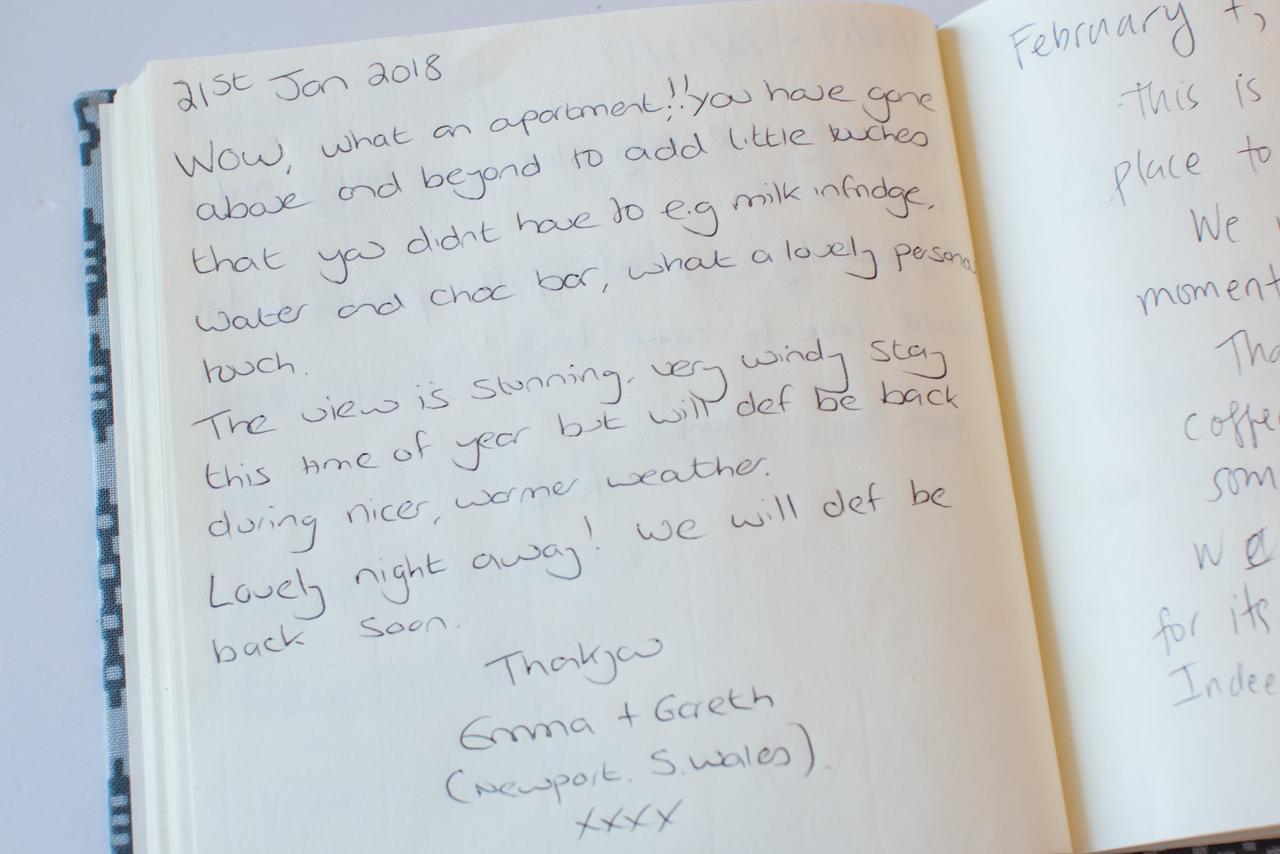 21st Jan 2018
Wow, what an apartment!! You have gone
above and beyond to add little touches
that you didnt have to e.g milk in fridge,
water and choc bar, what a lovely persona
touch.
The view is stunning, very windy stay
this time of year but will def be back
during nicer, warmer weather.
Lovely night away! We will def be
back soon.
Thankyou
Emma + Gareth
(Newport. S. Wales).
xxxx
February
This is
place to
We
moment
Tha
coffe
som
We
for its
Indee